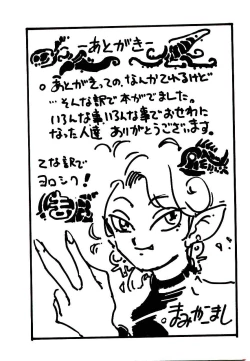 －あとがき－
。あとがきっての、なんかてれるけど
…そんな訳で本がでました。
いろんな事いろんな事でおせわに
なった人達 ありがとうございます。
てな訳で
ヨロシク！
。まみやこまし